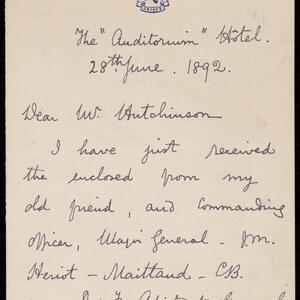 The "Auditorium" Hôtel.
28th June. 1892.
Dear Mr Hutchinson
I have just received
the enclosed from my
old freind, and commanding
officer, Major General - J.M.
Heriot - Maitland - CB.